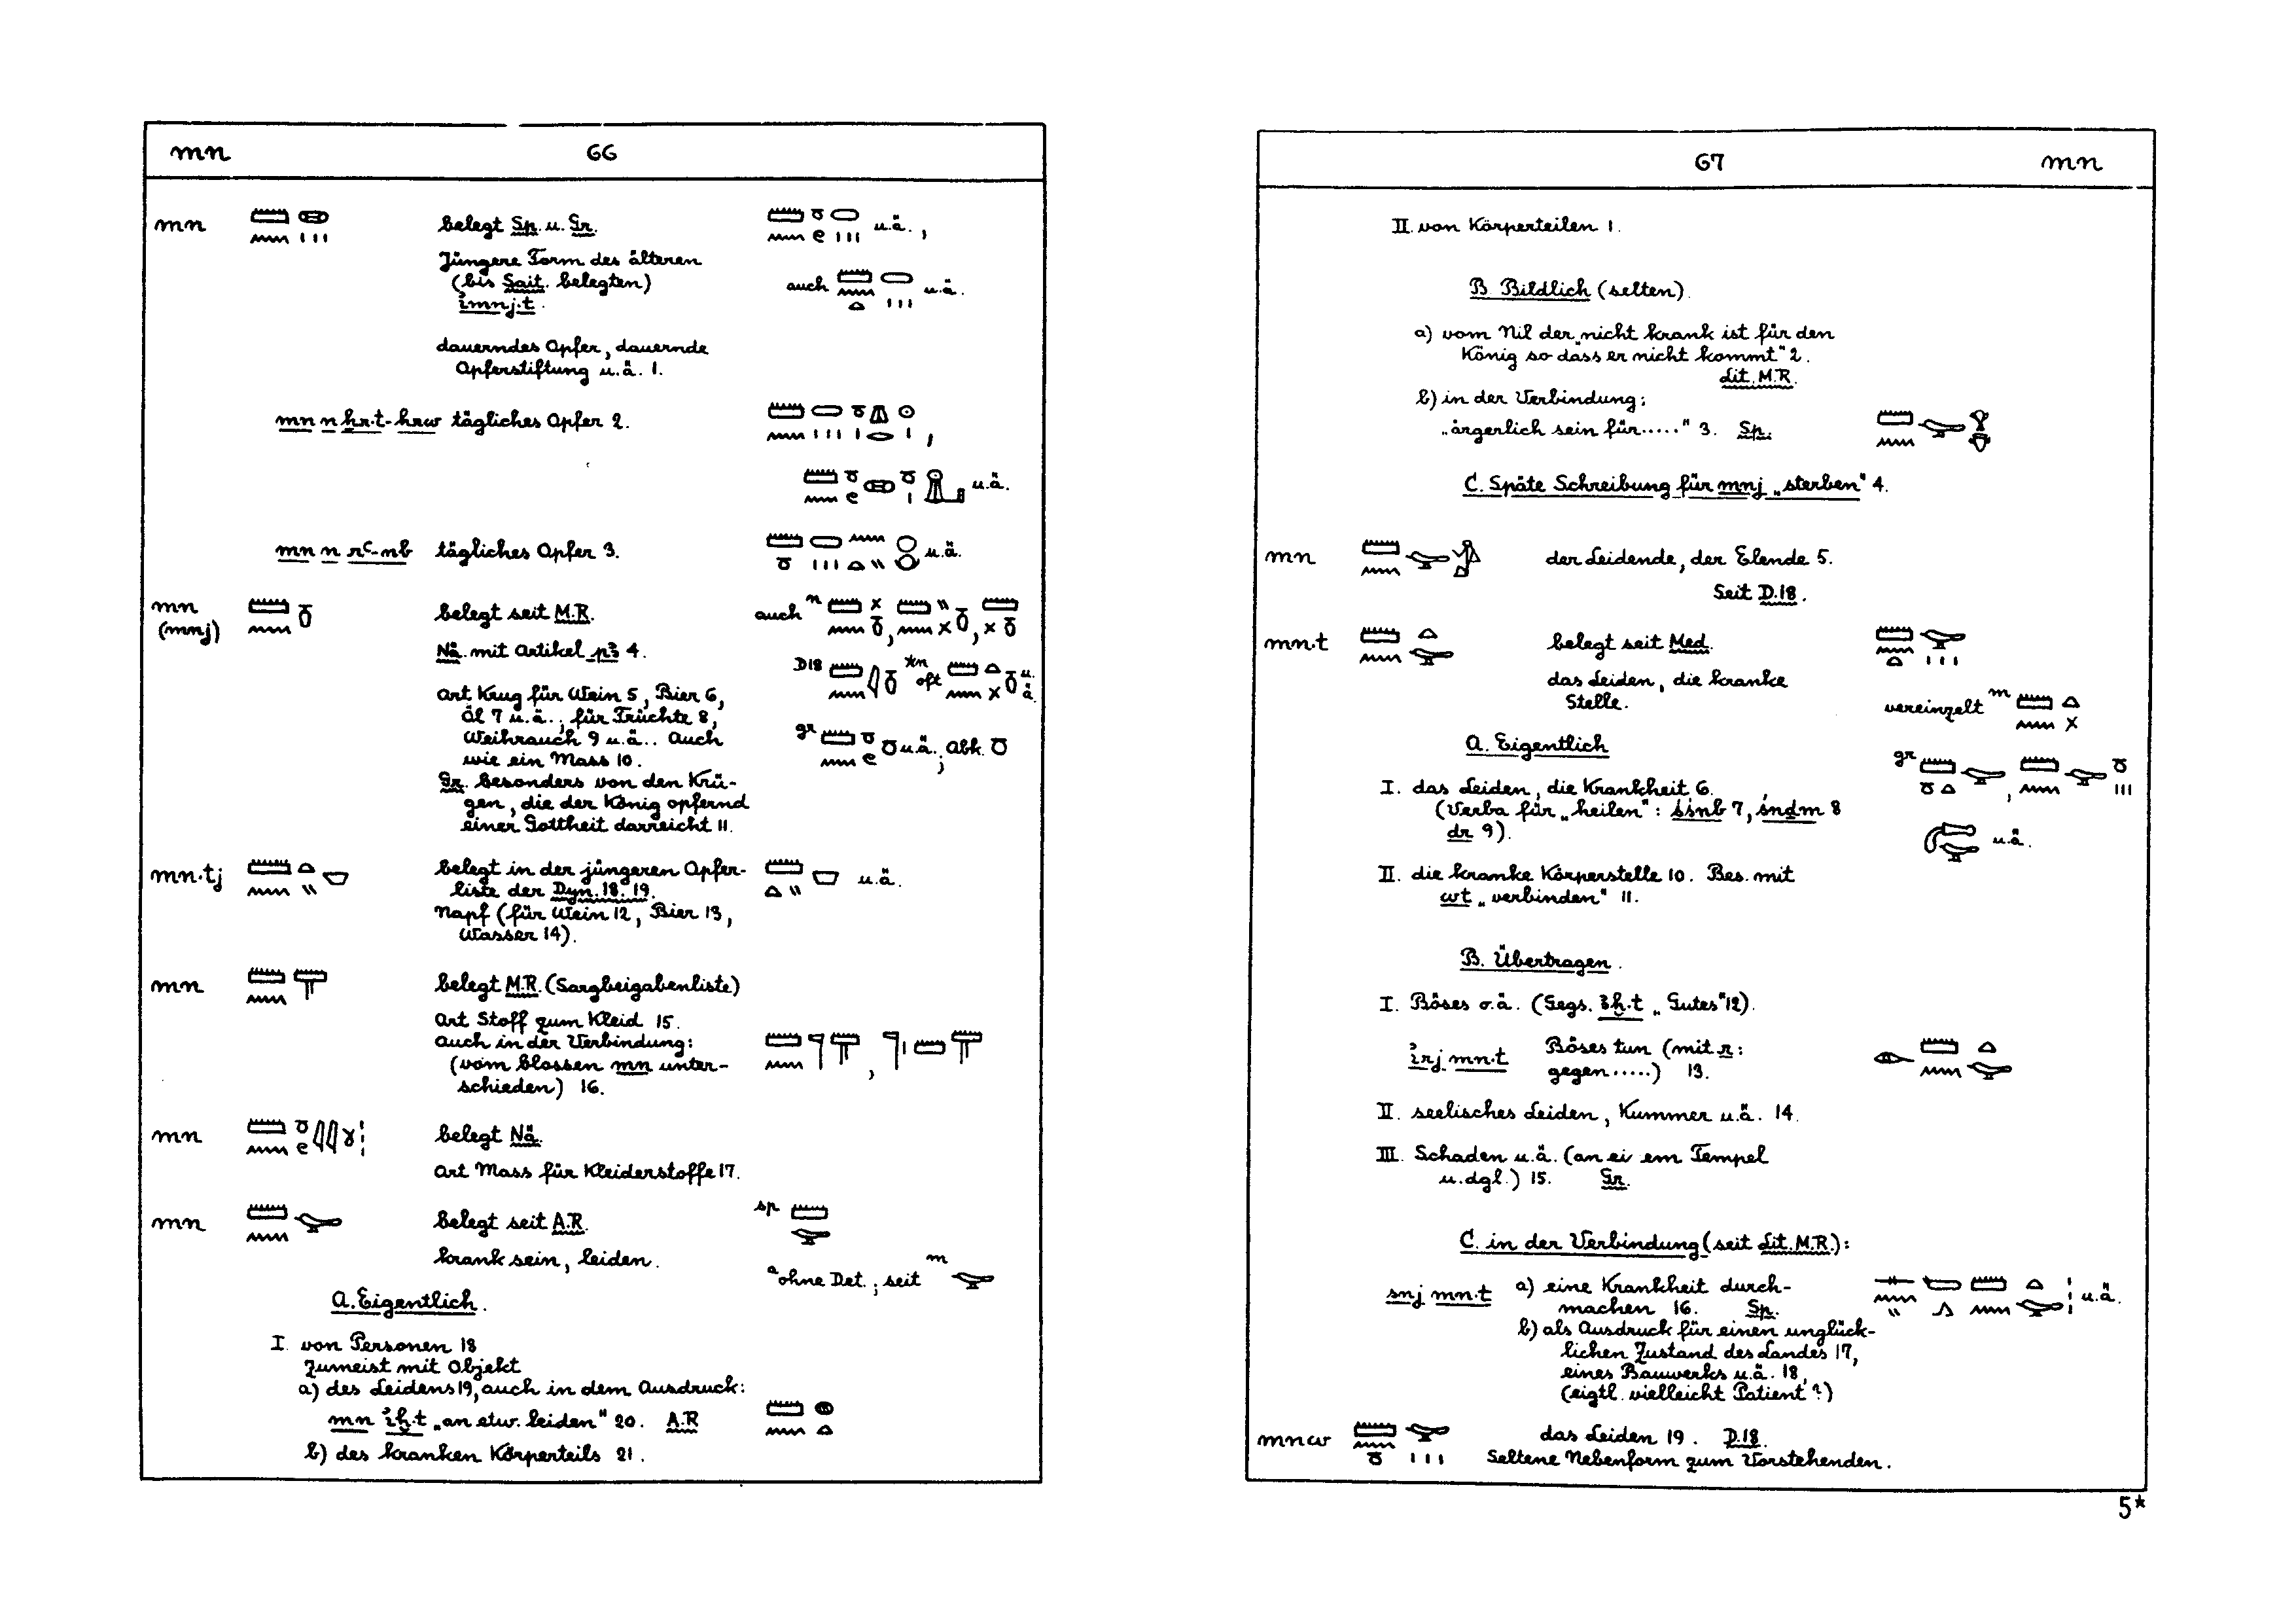 mn 66
mn belegt Sp. u. Gr. u.ä.,
Jüngere Form des älteren
(bis Sait. belegten) auch u.ä.
ỉmnj.t.
dauerndes Opfer, dauernde
Opferstiftung u.ä. 1.
mn n ẖr.t-hrw tägliches Opfer 2. ,
u.ä.
mn n rꜥ-nb tägliches Opfer 3. u.ä.
mn belegt seit M.R. auch n , ,
(mnj)
Nä. mit Artikel pꜣ 4. D18 *n oft u.ä.
Art Krug für Wein 5, Bier 6,
Öl 7 u.ä., für Früchte 8,
Weihrauch 9 u.ä.. Auch gr u.ä.; Abk.
wie ein Mass 10.
Gr. besonders von den Krü-
gen, die der König opfernd
einer Gottheit darreicht 11.
mn.tj belegt in der jüngeren Opfer- u.ä.
liste der Dyn. 18. 19.
Napf (für Wein 12, Bier 13,
Wasser 14).
mn belegt M.R. (Sargbeigabenliste)
Art Stoff zum Kleid 15.
auch in der Verbindung: ,
(vom blossen mn unter-
schieden) 16.
mn belegt Nä.
Art Mass für Kleiderstoffe 17.
mn belegt seit A.R. sp
krank sein, leiden. a ohne Det.; seit m
A. Eigentlich.
I. von Personen 18
Zumeist mit Objekt
a) des Leidens 19, auch in dem Ausdruck:
mn ỉḫ.t „an etw. leiden" 20. A.R
b) des kranken Körperteils 21.
67 mn
II. von Körperteilen 1.
B. Bildlich (selten).
a) vom Nil der „nicht krank ist für den
König so dass er nicht kommt" 2.
Lit. M.R.
b) in der Verbindung:
„ärgerlich sein für....." 3. Sp.
C. Späte Schreibung für mnj „sterben" 4.
mn der Leidende, der Elende 5.
Seit D.18.
mn.t belegt seit Med.
das Leiden, die kranke
Stelle. vereinzelt m
A. Eigentlich gr ,
I. das Leiden, die Krankheit 6.
(Verba für „heilen": śśnb 7, śnḏm 8
dr 9). u.ä.
II. die kranke Körperstelle 10. Bes. mit
wt „verbinden" 11.
B. Übertragen.
I. Böses o.ä. (Gegs. ꜣḫ.t „Gutes" 12).
ỉrj mn.t Böses tun (mit r:
gegen.....) 13.
II. seelisches Leiden, Kummer u.ä. 14.
III. Schaden u.ä. (an ei em Tempel
u.dgl.) 15. Gr.
C. in der Verbindung (seit Lit. M.R.):
snj mn.t a) eine Krankheit durch- u.ä.
machen 16. Sp.
b) als Ausdruck für einen unglück-
lichen Zustand des Landes 17,
eines Bauwerks u.ä. 18,
(eigtl. vielleicht Patient?)
mnw das Leiden 19. D.18.
Seltene Nebenform zum Vorstehenden.
5*